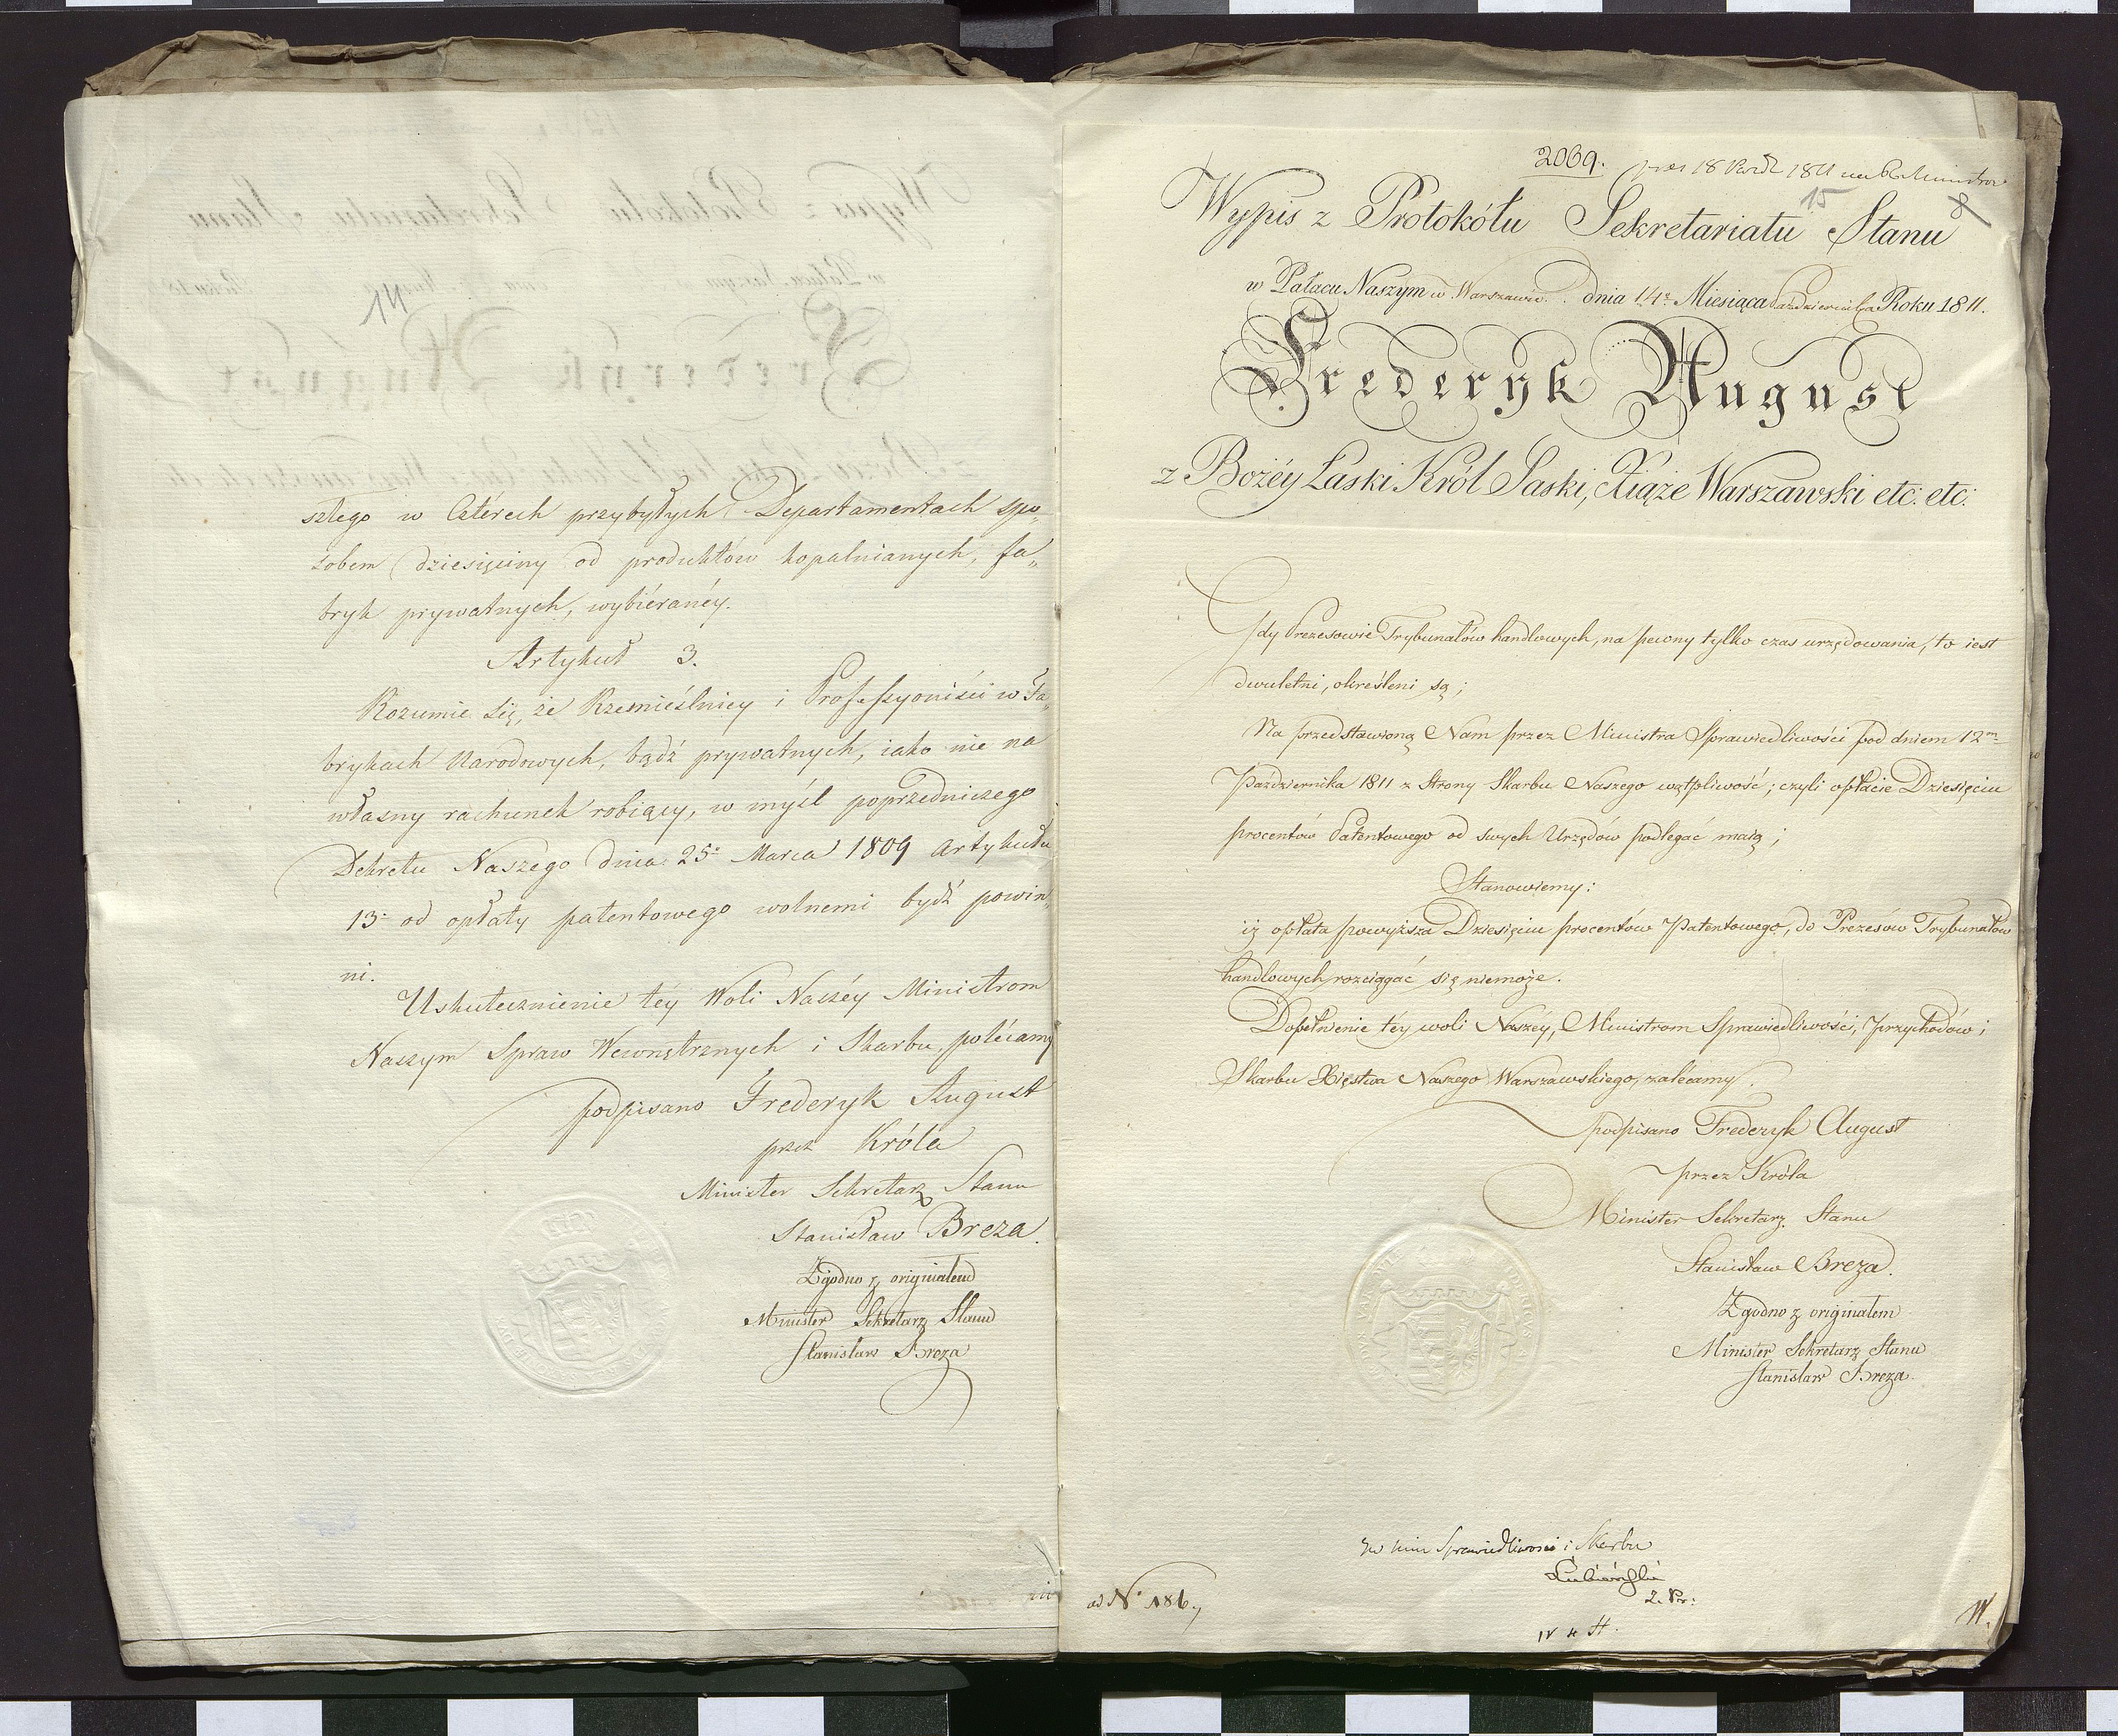 14
szłego w Czterech przybyłych Departamentach spo„
sobem dziesięciny od produktów kopalnianych, fa„
bryk prywatnych, wybiéranéy.
Artykuł 3.
Rozumie się, że Rzemieślnicy i Professyoniści w Fa„
brykach Narodowych, bądź prywatnych, iako nie na
własny rachunek robiący, w myśl poprzedniczego
Dekretu Naszego dnia 25º Marca 1809 Artykułu
13º od opłaty patentowego wolnemi bydź powin„
ni.
Uskutecznienie téy Woli Naszéy Ministrom
Naszym Spraw Wewnętrznych i Skarbu, polécamy
podpisano Frederyk August
przez Króla
Minister Sekretarz Stanu
Stanisław Breza.
Zgodno z originałem
Minister Sekretarz Stanu
Stanisław Breza
2069. 18 Paźd 1811
15
8
Wypis z Protokółu Sekretariatu Stanu
w Pałacu Naszym w Warszawie. dnia 14º Miesiąca Października Roku 1811.
Frederyk August
z Bożéy Łaski Król Saski, Xiąże Warszawski etc: etc:
Gdy Prezesowie Trybunałów handlowych, na pewny tylko czas urzędowania, to iest
dwuletni, określeni są;
Na przedstawioną Nam przez Ministra Sprawiedliwości pod dniem 12m
Października 1811 z Strony Skarbu Naszego wątpliwość; czyli opłacie Dziesięciu
procentów Patentowego od swych Urzędów podlegać maią;
Stanowiemy:
iż opłata powyższa Dziesięciu procentów Patentowego, do Prezesów Trybunałów
handlowych rozciągać się niemoże.
Dopełnienie téy woli Naszéy, Ministrom Sprawiedliwości, Przychodów i
Skarbu Xięstwa Naszego Warszawskiego, zalécamy.
podpisano Frederyk August
przez Króla
Minister Sekretarz Stanu
Stanisław Breza.
Zgodno z originałem
Minister Sekretarz Stanu
Stanisław Breza
Sprawiedliwości i Skarbu
Łubieński
ad Nº 186.